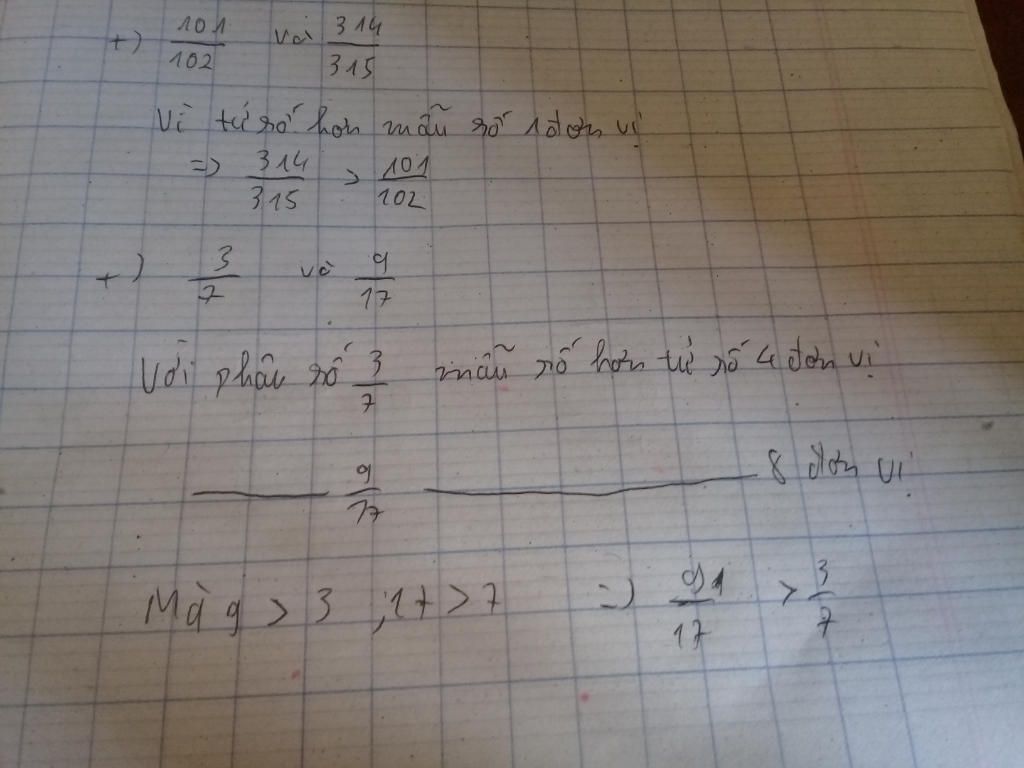 +) 101/102 và 314/315
Vì tử số hơn mẫu số 1 đơn vị
=> 314/315 > 101/102
+) 3/7 và 9/17
Với phân số 3/7 mẫu số hơn tử số 4 đơn vị
——— 9/17 ——————— 8 đơn vị
Mà 9 > 3 ; 17 > 7 => 9/17 > 3/7